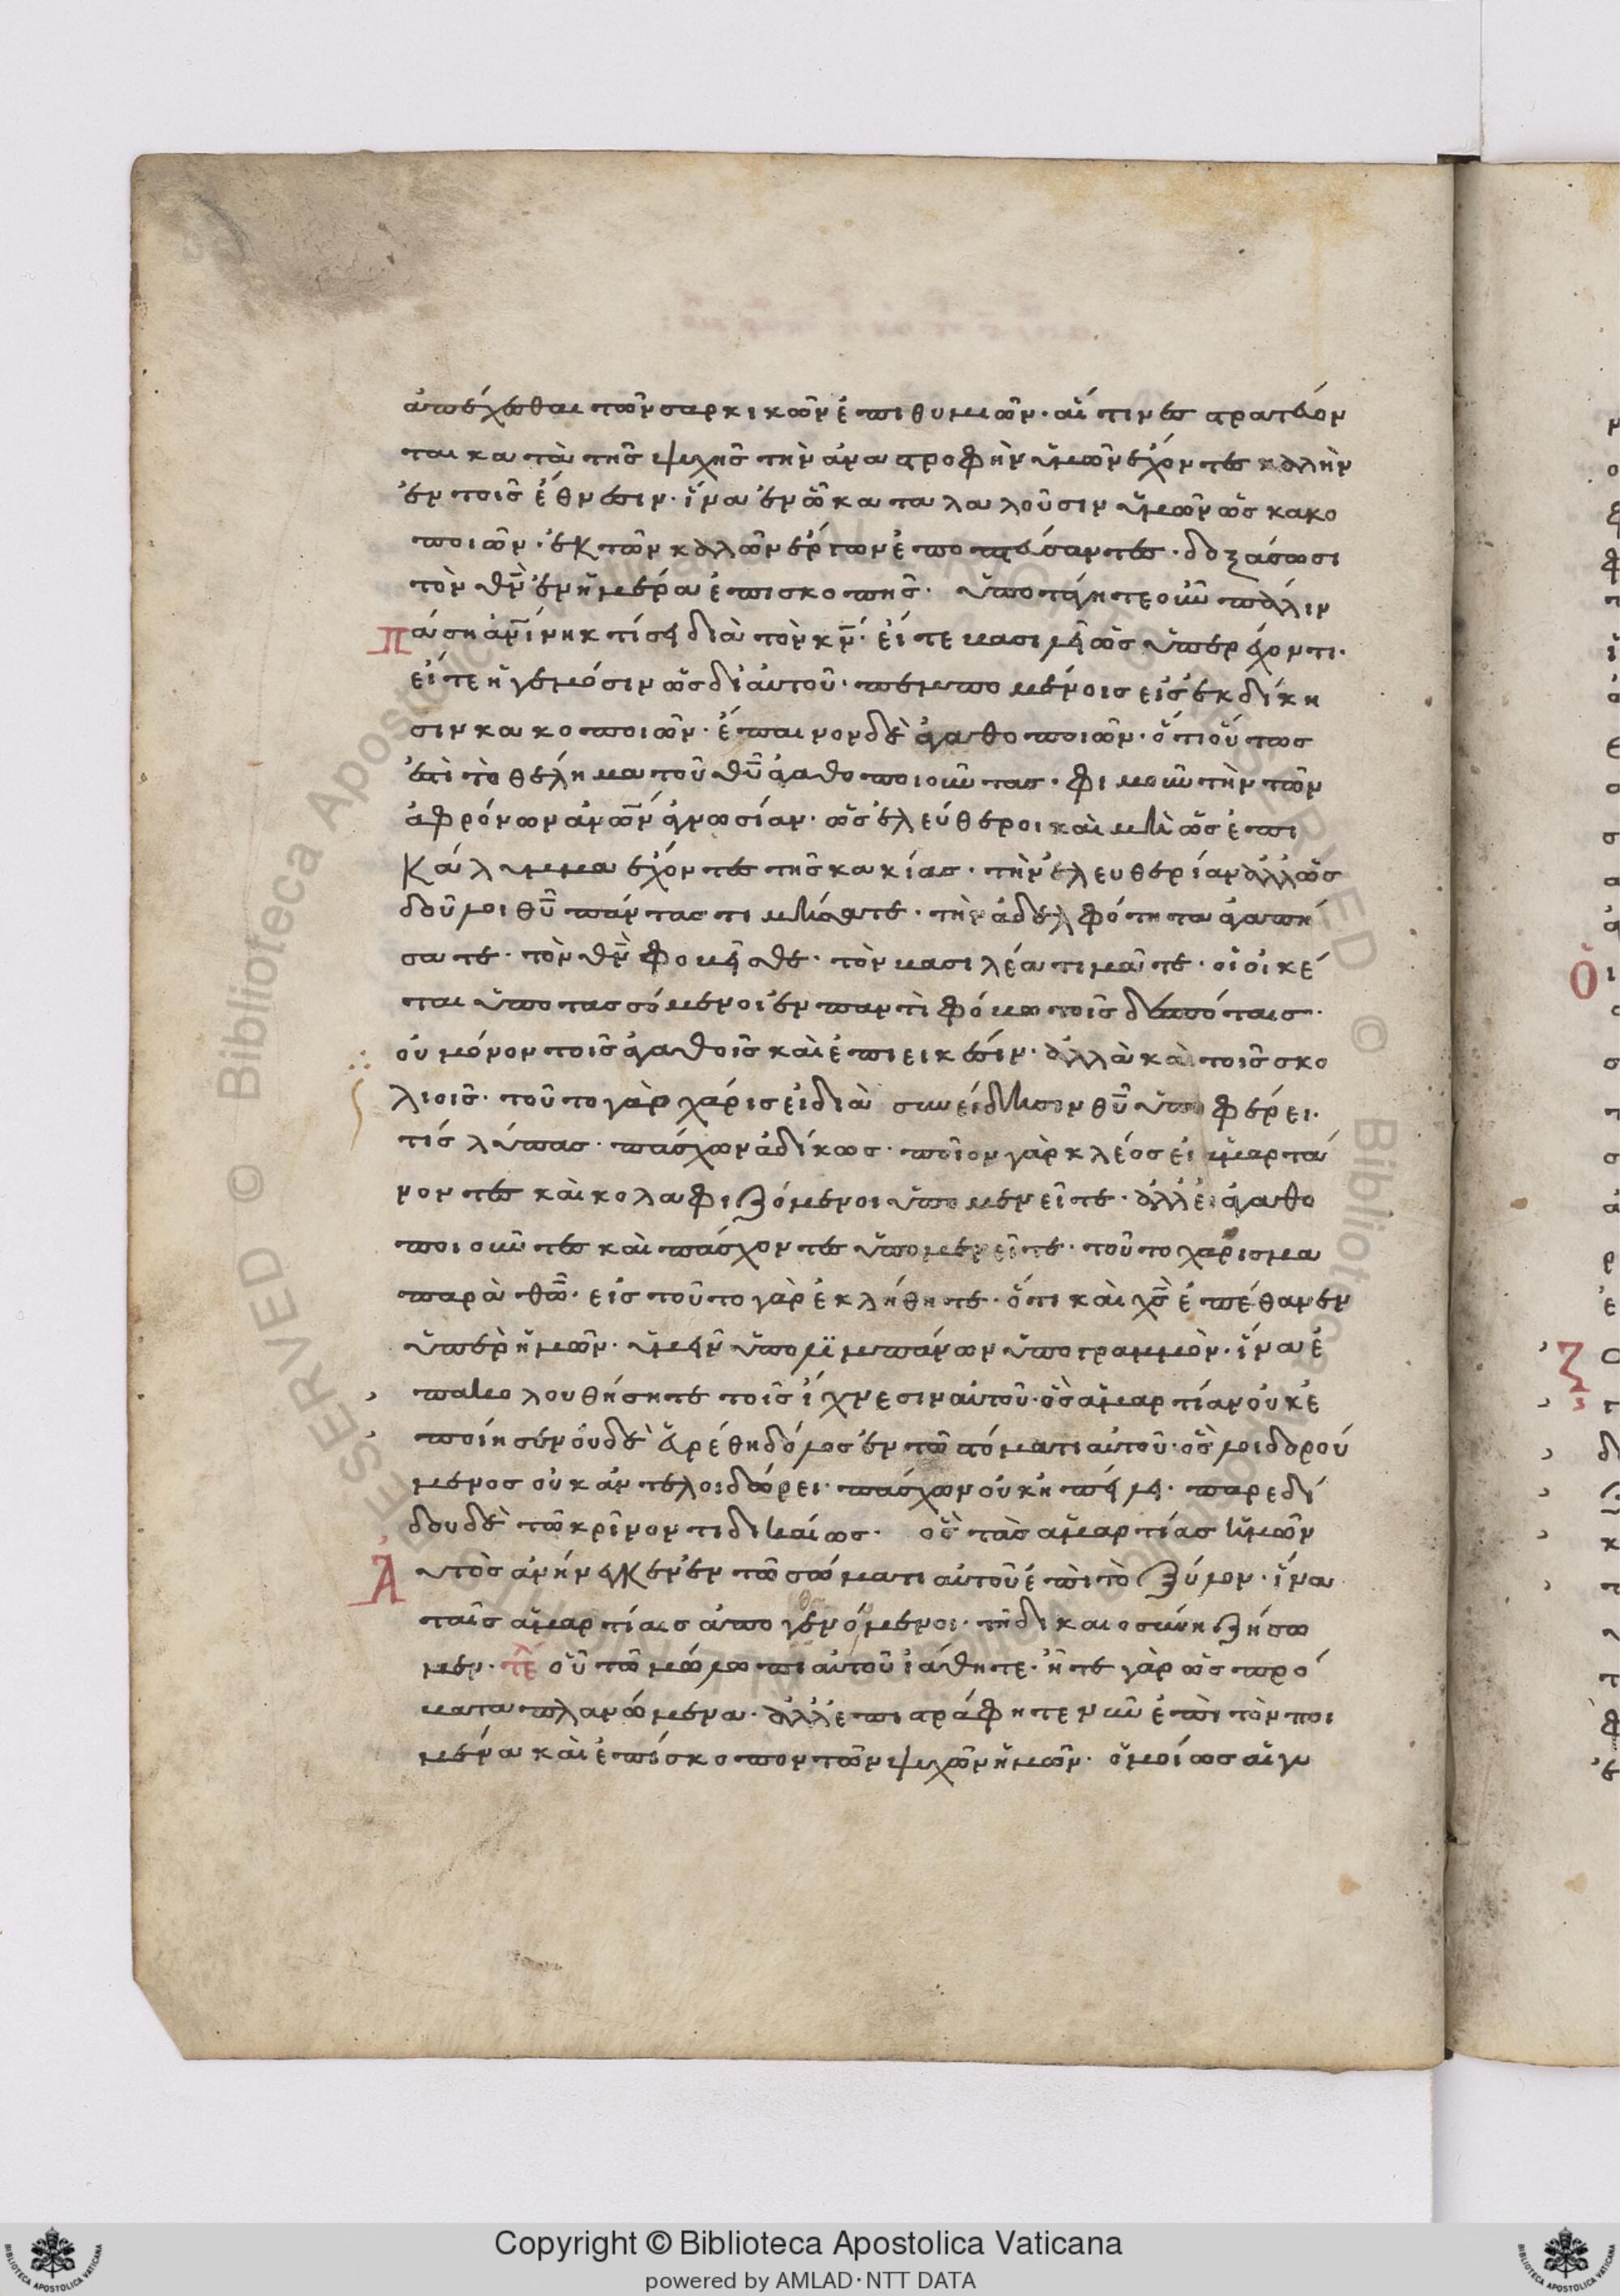 ἀπέχεσθαι τῶν σαρκικῶν ἐπιθυμιῶν· αἵτινες στρατεύον
ται κατὰ τῆς ψυχῆς τὴν ἀναστροφὴν ὑμῶν ἔχοντες καλὴν
ἐν τοῖς ἔθνεσιν· ἵνα ἐν ᾧ καταλαλοῦσιν ὑμῶν ὡς κακο
ποιῶν· ἐκ τῶν καλῶν ἔργων ἐποπτεύσαντες· δοξάσωσι
τὸν θν̅ ἐν ἡμέρα ἐπισκοπῆς· ὑποτάγητε οὖν πάλιν
Πάση ἀν̅ίνη κτίσει διὰ τὸν κν̅· εἴτε βασιλεῖ ὡς ὑπερέχοντι·
εἴτε ἡγεμόσιν ὡς δι αὐτοῦ· πεμπομένοις εἰς ἐκδίκη
σιν κακοποιῶν· ἔπαινον δὲ ἀγαθοποιῶν· ὅτι οὕτως
ἐστὶ τὸ θέλημα τοῦ θυ̅ ἀγαθοποιοῦντας· φιμοῦν τὴν τῶν
ἀφρόνων ἀν̅ων ἀγνωσίαν· ὡς ἐλεύθεροι καὶ μὴ ὡς ἐπι
κάλυμμα ἔχοντες τῆς κακίας· τὴν ἐλευθερίαν ἀλλ ὡς
δοῦλοι θυ̅ πάντας τιμήσατε· τὴν ἀδελφότητα ἀγαπή
σατε· τὸν θν̅ φοβεῖσθε· τὸν βασιλέα τιμᾶτε· οἱ οἰκέ
ται ὑποτασσόμενοι ἐν παντὶ φόβω τοῖς δεσπόταις·
οὐ μόνον τοῖς ἀγαθοῖς καὶ ἐπιεικέσιν· ἀλλὰ καὶ τοῖς σκο
λιοῖς· τοῦτο γὰρ χάρις εἰ διὰ συνείδησιν θυ̅ ὑποφέρει·
τίς λύπας· πάσχων ἀδίκως· ποῖον γὰρ κλέος εἰ ἁμαρτά
νοντες καὶ κολαφιζόμενοι ὑπομενεῖτε· ἀλλ εἰ ἀγαθο
ποιοῦντες καὶ πάσχοντες ὑπομενεῖτε· τοῦτο χάρισμα
παρὰ θω̅· εἰς τοῦτο γὰρ ἐκλήθητε· ὅτι καὶ χς̅ ἐπέθανεν
ὑπὲρ ἡμῶν· ὑμῖν ὑπολιμπάνων ὑπογραμμὸν· ἵνα ἐ
πακολουθήσητε τοῖς ἴχνεσιν αὐτοῦ· ὃς ἁμαρτίαν οὐκ ἐ
ποίησεν οὐδὲ εὑρέθη δόλος ἐν τῶ στόματι αὐτοῦ· ὃς λοιδορού
μενος οὐκ ἀντελοιδώρει· πάσχων οὐκ ἠπείλει· παρεδί
δου δὲ τῶ κρίνοντι δικαίως· ὃς τὰς ἁμαρτίας ἡμῶν
Αὐτὸς ἀνήνεγκεν ἐν τῶ σώματι αὐτοῦ ἐπὶ τὸ ξύλον· ἵνα
ταῖς ἁμαρτίαις ἀπογενόμενοι· τῆ δικαιοσύνη ζήσω
μεν· τε̅λ οὗ τῶ μώλωπι αὐτοῦ ἰάθητε· ἦτε γὰρ ὡς πρό
βατα πλανώμενα· ἀλλ ἐπιστράφητε νῦν ἐπὶ τὸν ποι
μένα καὶ ἐπίσκοπον τῶν ψυχῶν ἡμῶν· ὁμοίως αἱ γυ
Copyright © Biblioteca Apostolica Vaticana
powered by AMLAD·NTT DATA